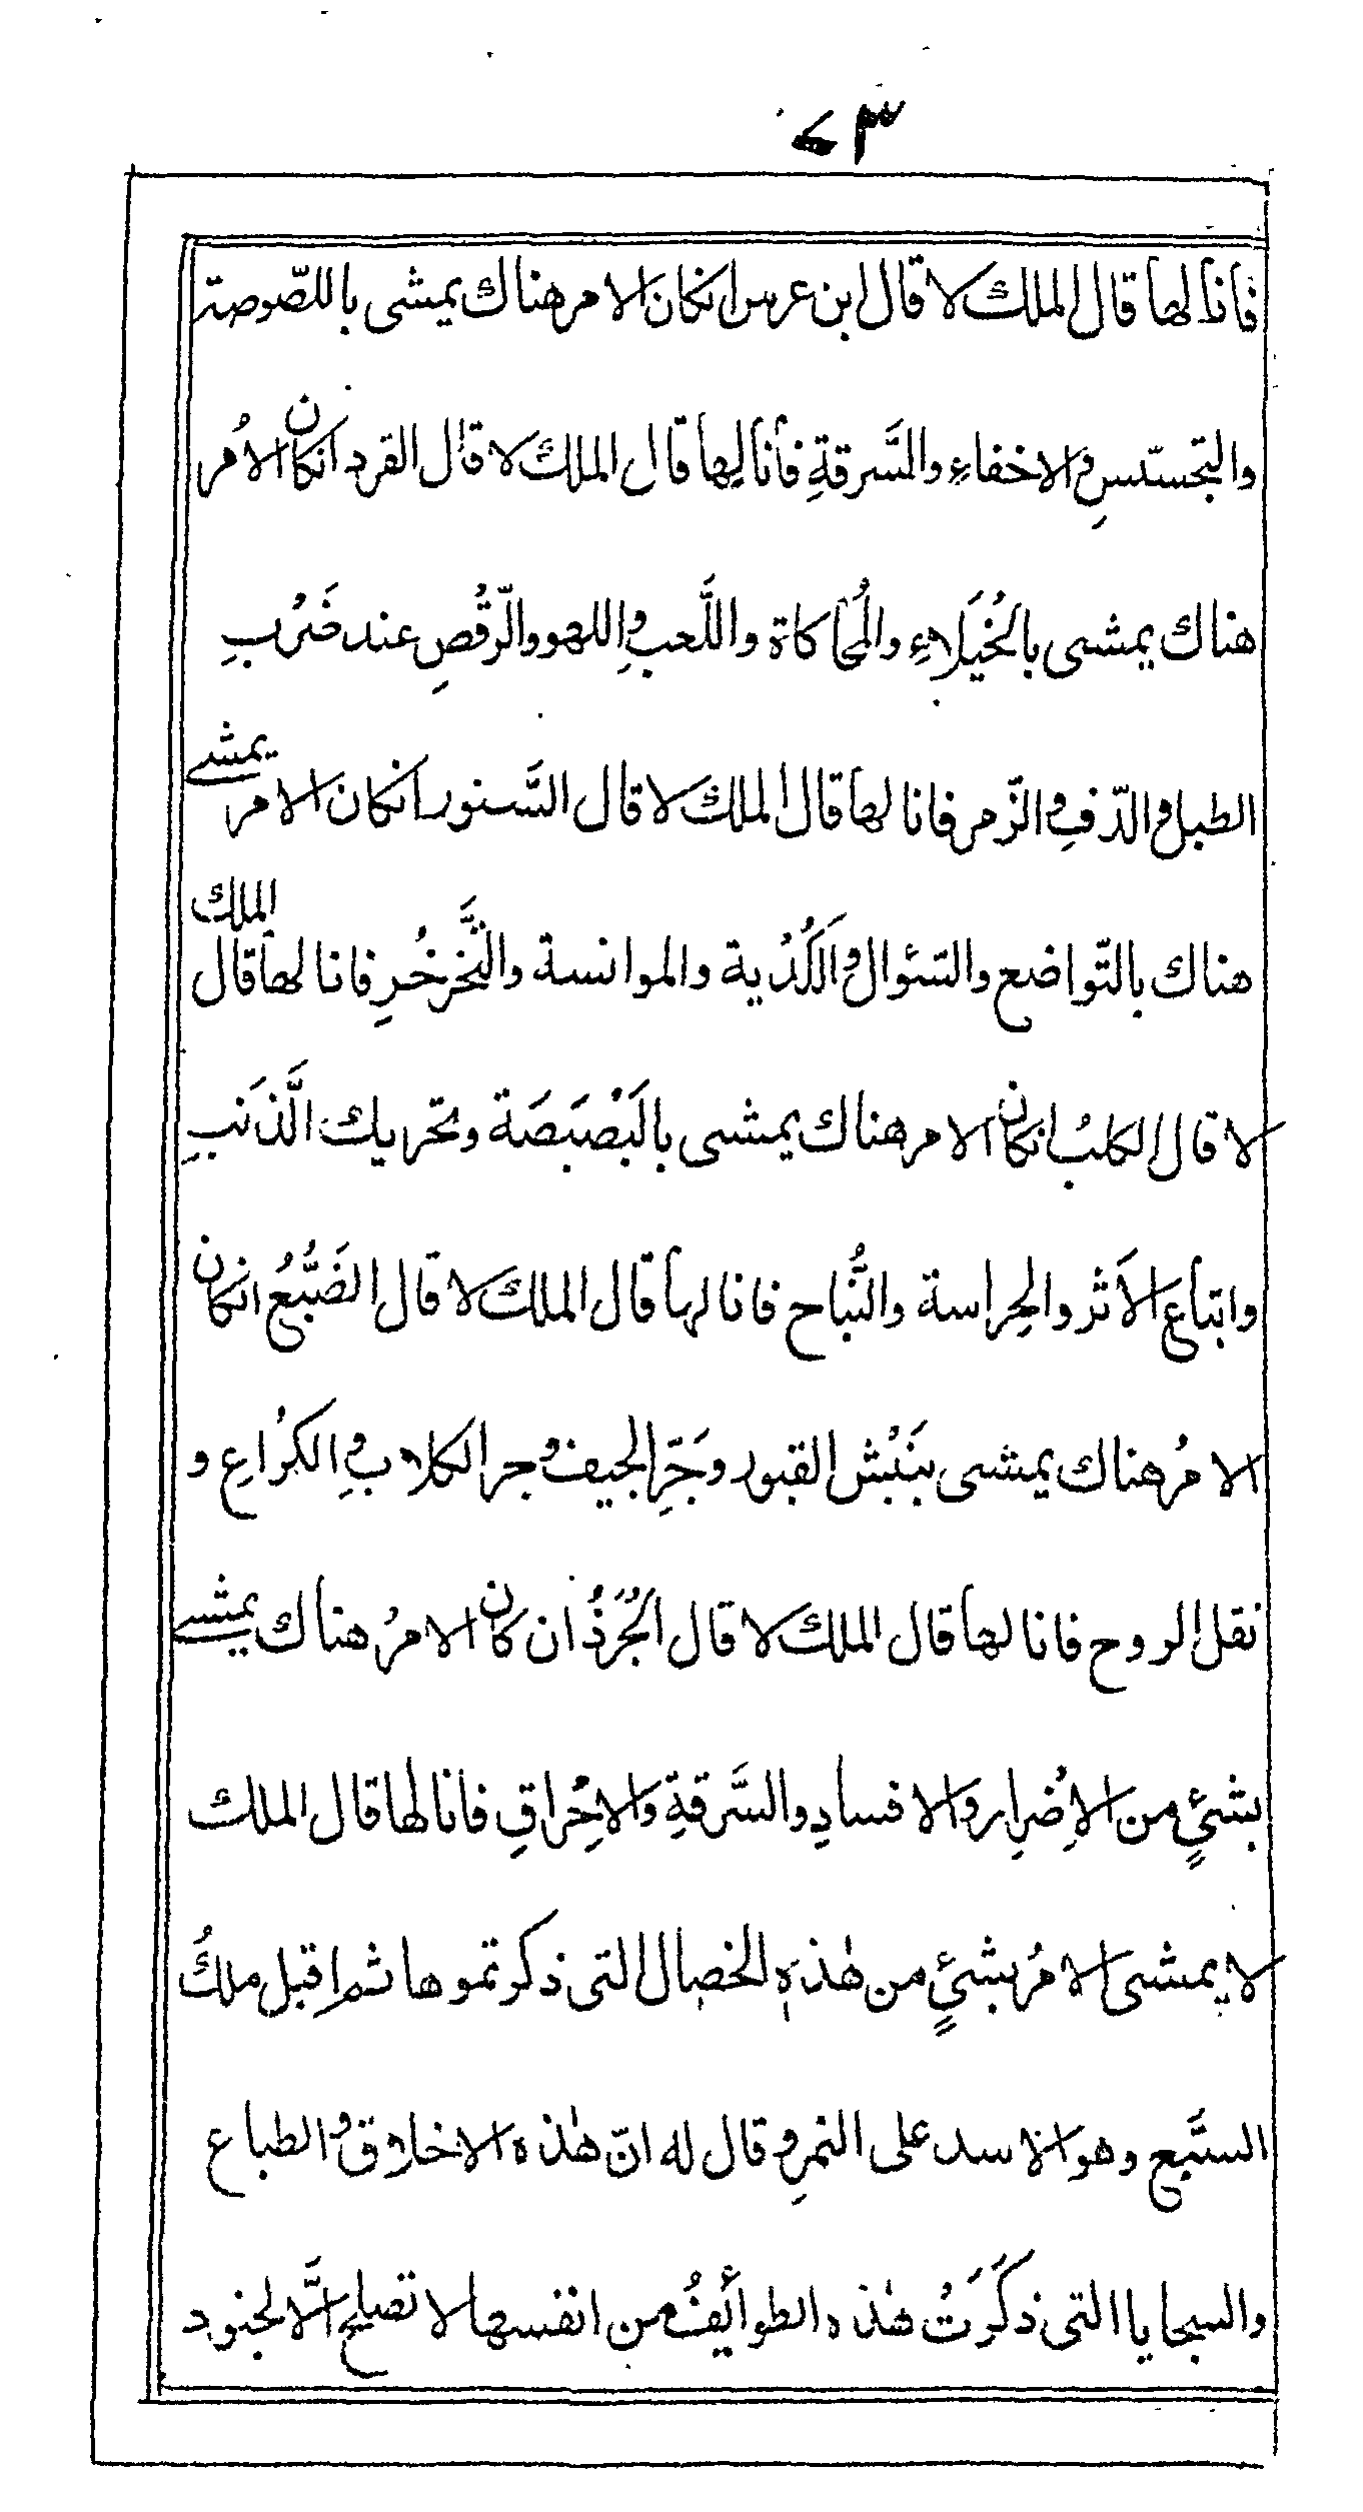 ٧٣
فانا لها قال الملك لا قال ابن عرس انكان الامر هناك يمشى باللّصوصة
والتجسّسِ والاخفاءِ والسَّرقةِ فأنا لها قال الملك لا قال القرد انكان الامُر
هناك يمشى بالخُيَلاءِ والمُحاكاة واللَّعبِ واللهو والرّقُصِ عند ضَرْبِ
الطبل والدّفِ والزّمر فانا لها قال الملك لا قال السَّنور انكان الامر يمشى
هناك بالتّواضع والسّئوال والكُدُية والموانسة والتَّخرخُرِ فانا لها قال الملك
لا قال الكلبُ انكان الامر هناك يمشى بالبَصْبَصَة وتحريك الَّذنَبِ
واتباع الاَثر والحِراسة والنُّباح فانا لها قال الملك لا قال الضَبُّعُ انكان
الامُر هناك يمشى بنَبْش القبور وجَرِّ الجيف وجر الكلابِ والكُراعِ و
نقل الروح فانا لها قال الملك لا قال الجُرَذُ ان كان الامرُ هناك يمشى
بشئٍ من الاِضرارِ والافسادِ والسَّرقةِ والاِحْراقِ فانا لها قال الملك
لا يمشى الامرُ بشئٍ من هٰذه الخصال التى ذكرتموها ثم اقبل ملكُ
السَّبع وهو الاسد على النمرِ وقال له انّ هٰذه الاخلاق والطباع
والسجايا التى ذكَرَتُ هٰذه الطوائِفُ من انفسها لا تصلح الَّا لجنود